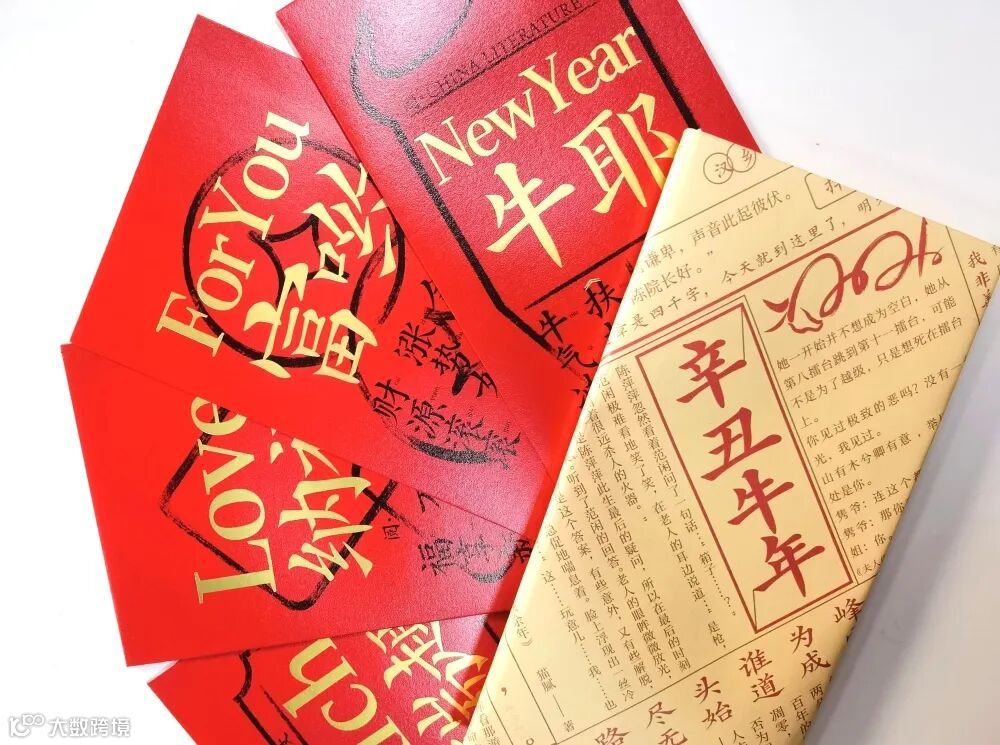 CHINA LITERATURE
New Year
牛耶
牛气
扶
For You
富
涨势
财源滚滚
Love
纳
福
ich
汉
乡
谦卑，声音此起彼伏。
陈院长好。”
是四千字，今天就到这里了，明
我
非
辛丑牛年
她一开始并不想成为空白，她从
第八擂台跳到第十一擂台，可能
不是为了越级，只是想死在擂台
上。
你见过极致的恶吗？没有
光，我见过。
山有木兮卿有意，
处是你。
隽爷：连这个
隽爷：那你
姐：你。
陈萍萍忽然看着范闲问了一句话：“箱子……？”
范闲极难看地笑了笑，在老人的耳边说道：“……是枪，
很远杀人的火器。”
是陈萍萍此生最后的疑问，所以在最后的时刻
听到了范闲的回答。老人的眼眸微微放光，
这个答案，有些意外，又有些解脱，
促地喘息着，脸上浮现出一丝冷
……这……玩意儿……我……也
猫腻 著
峰
谁道
为成
头始
尽无
路
大数跨境